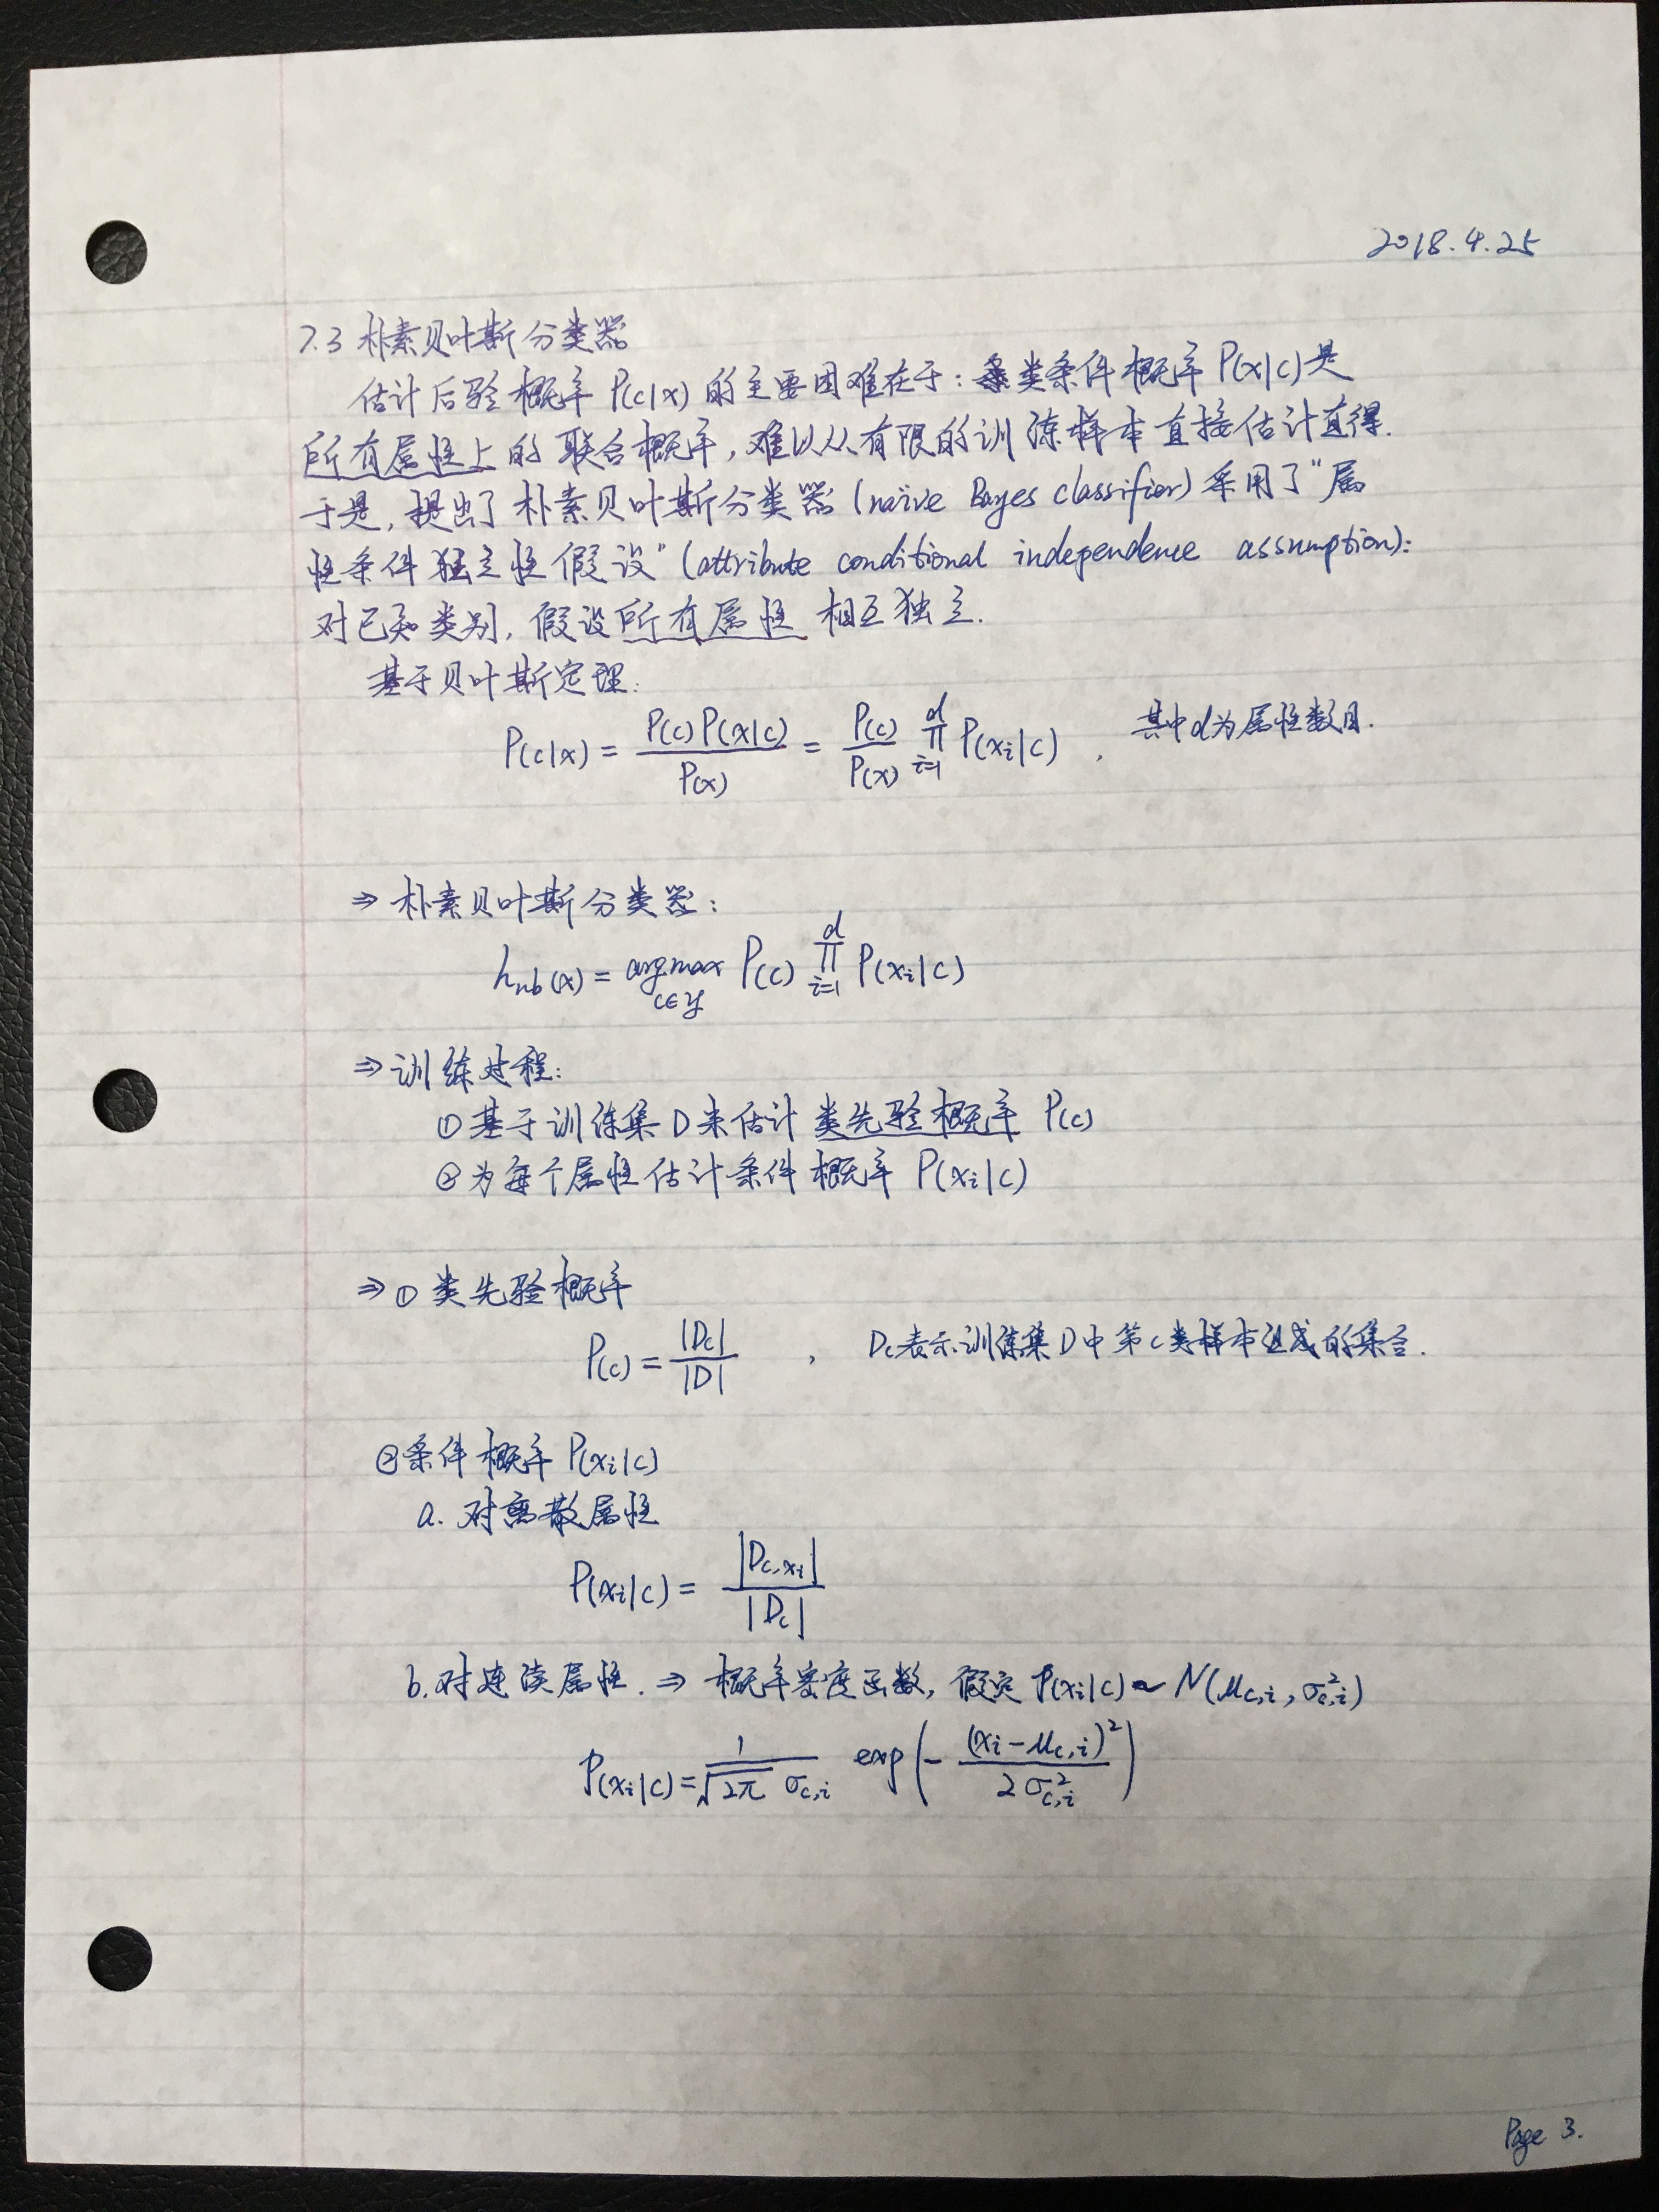 2018.4.25
7.3 朴素贝叶斯分类器
估计后验概率 P(c|x) 的主要困难在于: 类条件概率 P(x|c) 是
所有属性上的联合概率, 难以从有限的训练样本直接估计直得.
于是, 提出了朴素贝叶斯分类器 (naïve Bayes classifier) 采用了"属
性条件独立性假设" (attribute conditional independence assumption):
对已知类别, 假设所有属性相互独立.
基于贝叶斯定理:
P(c|x) = P(c)P(x|c) / P(x) = P(c) / P(x) ∏_{i=1}^{d} P(xi|c) , 其中d为属性数目.
⇒ 朴素贝叶斯分类器:
h_nb(x) = argmax_{c∈y} P(c) ∏_{i=1}^{d} P(xi|c)
⇒ 训练过程:
① 基于训练集D来估计类先验概率 P(c)
② 为每个属性估计条件概率 P(xi|c)
⇒ ① 类先验概率
P(c) = |Dc| / |D| , Dc表示训练集D中第c类样本组成的集合.
② 条件概率 P(xi|c)
a. 对离散属性
P(xi|c) = |Dc,xi| / |Dc|
b. 对连续属性. ⇒ 概率密度函数, 假定 P(xi|c) ~ N(μc,i, σ²c,i)
P(xi|c) = 1 / (√2π σc,i) exp(- (xi-μc,i)² / 2σ²c,i)
Page 3.